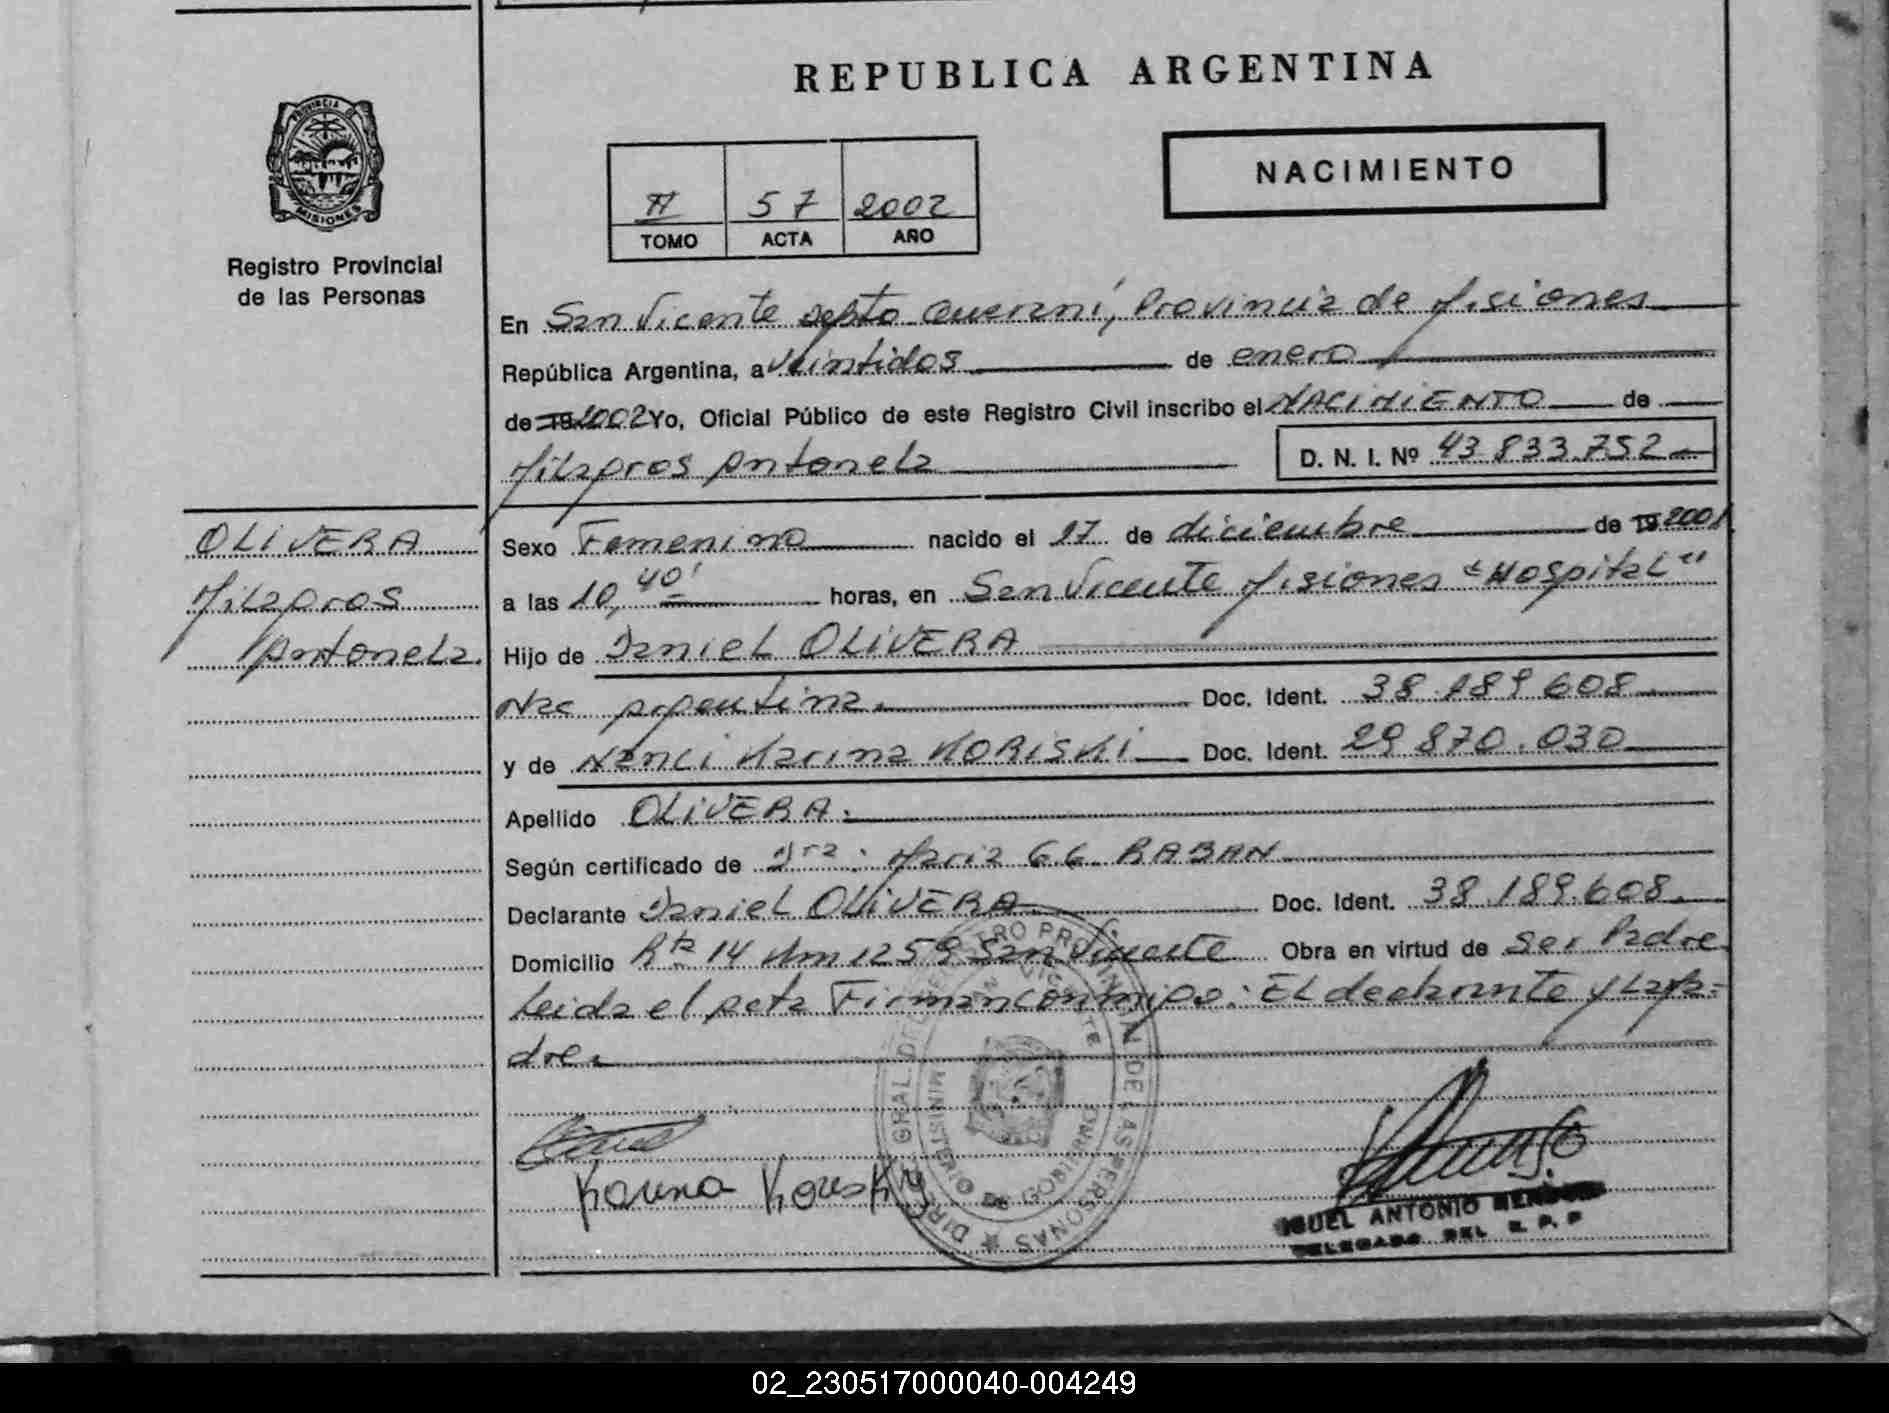 REPUBLICA ARGENTINA
PROVINCIA DE
MISIONES
Registro Provincial
de las Personas
II 57 2002
TOMO ACTA AÑO
NACIMIENTO
En San Vicente Depto Guaraní, Provincia de Misiones
República Argentina, a veintidos de enero
de 19 2002 Yo, Oficial Público de este Registro Civil inscribo el NACIMIENTO de
Milagros Antonela
D. N. I. Nº 43.833.752
OLIVERA
Milagros
Antonela.
Sexo Femenino nacido el 17 de diciembre de 19 2001
a las 10,40' horas, en San Vicente Misiones "Hospital"
Hijo de Daniel OLIVERA
Nac Argentina. Doc. Ident. 38.189.608
y de Nanci Karina KORISKI Doc. Ident. 29.870.030
Apellido OLIVERA.
Según certificado de Dra: Maria RABAN
Declarante Daniel OLIVERA Doc. Ident. 38.189.608.
Domicilio Rta 14 Km 1259 San Vicente Obra en virtud de ser Padre
Leida el acta Firman conmigo: EL declarante y La Ma=
dre.
Karina Koriski
DIREC. GRAL. DEL REGISTRO PROVINCIAL DE LAS PERSONAS
SAN VICENTE
MINISTERIO DE GOBIERNO
MIGUEL ANTONIO
DELEGADO DEL R. P. P
02_230517000040-004249